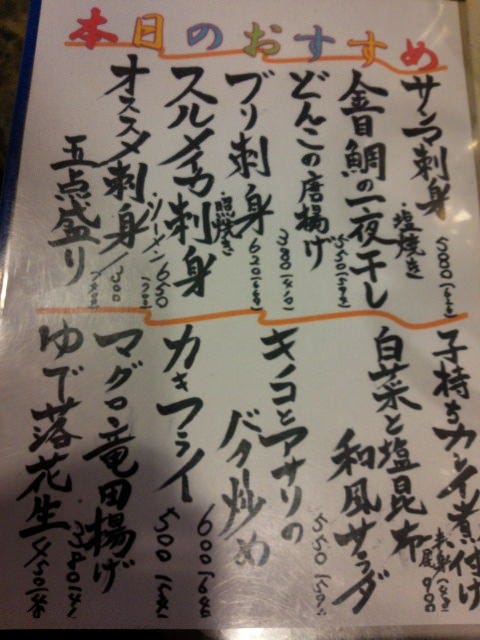 本日のおすすめ
サンマ刺身
・塩焼き
金目鯛の一夜干し
550
どんこの唐揚げ
380
ブリ刺身
・照焼き
620
スルメイカ刺身
・ソーメン 650
オススメ刺身
五点盛り
1300
子持ちカレイ煮付け
900
白菜と塩昆布
和風サラダ
550
キノコとアサリの
バタ炒め
600
カキフライ
500
マグロ竜田揚げ
380
ゆで落花生
450